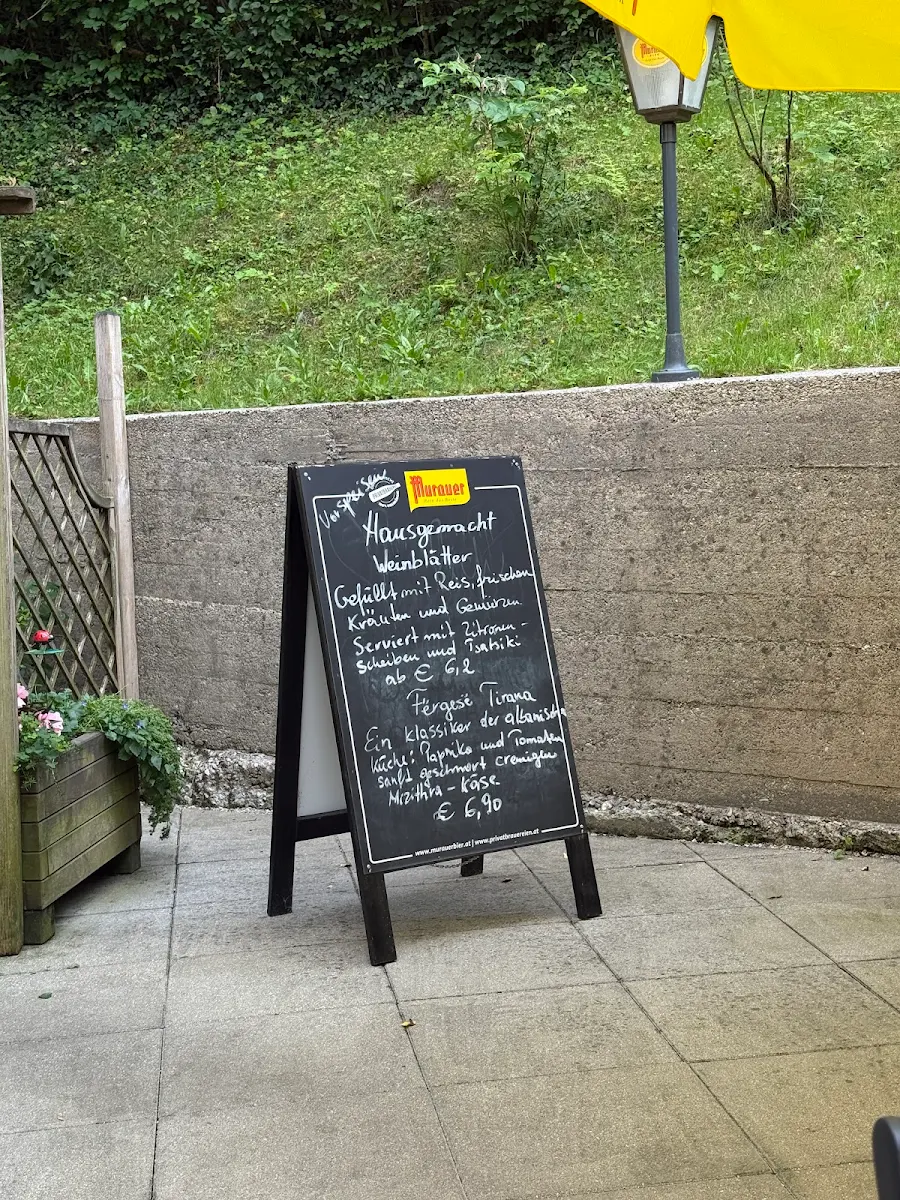 Vorspeisen
Murauer
Hausgemacht
Weinblätter
Gefüllt mit Reis, frischen
Kräuten und Gewürzen
Serviert mit Zitronen-
scheiben und Tsatsiki
ab € 6,2
Férgesë Tirana
Ein klassiker der albanische
Küche: Paprika und Tomaten
sanft geschmort cremigen
Mizithra-Käse
€ 6,90
www.murauerbier.at | www.privatbrauereien.at